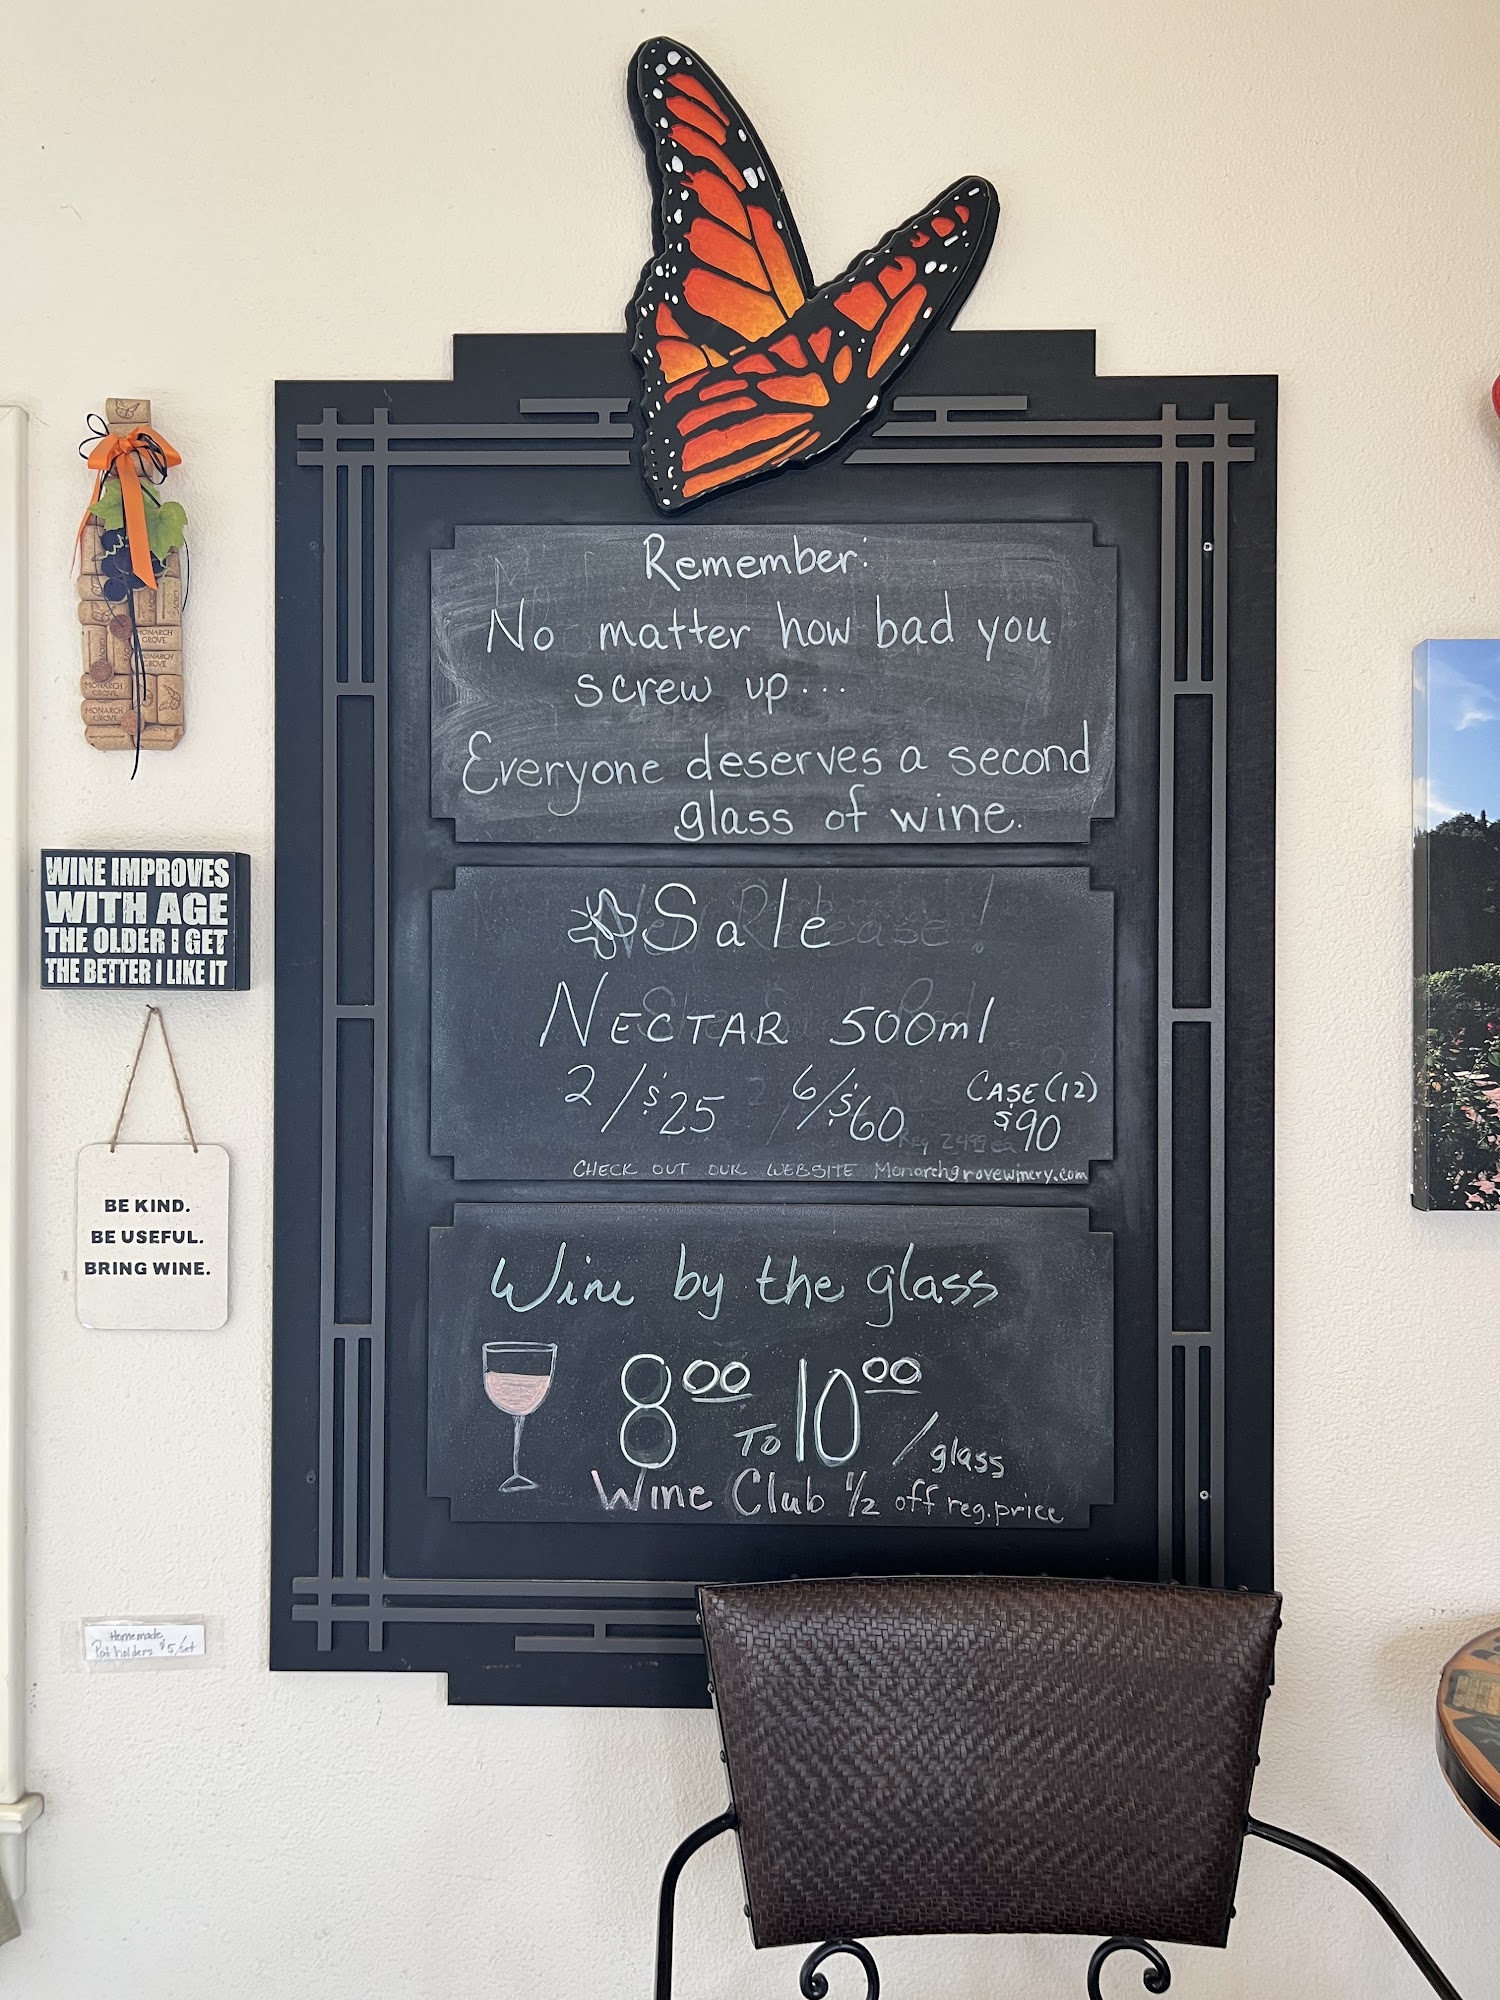 Remember:
No matter how bad you
screw up...
Everyone deserves a second
glass of wine.
Sale
NECTAR 500ml
2/$25 6/$60 CASE (12)
$90
CHECK OUT OUR WEBSITE Monarchgrovewinery.com
Wine by the glass
8.00 TO 10.00 /glass
Wine Club 1/2 off reg. price
MONARCH
GROVE
MONARCH
GROVE
MONARCH
GROVE
MONARCH
GROVE
WINE IMPROVES
WITH AGE
THE OLDER I GET
THE BETTER I LIKE IT
BE KIND.
BE USEFUL.
BRING WINE.
Homemade
Pot holders $5/set